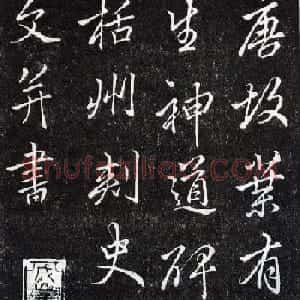 唐故葉有
生神道碑
栝州刺史
文并書